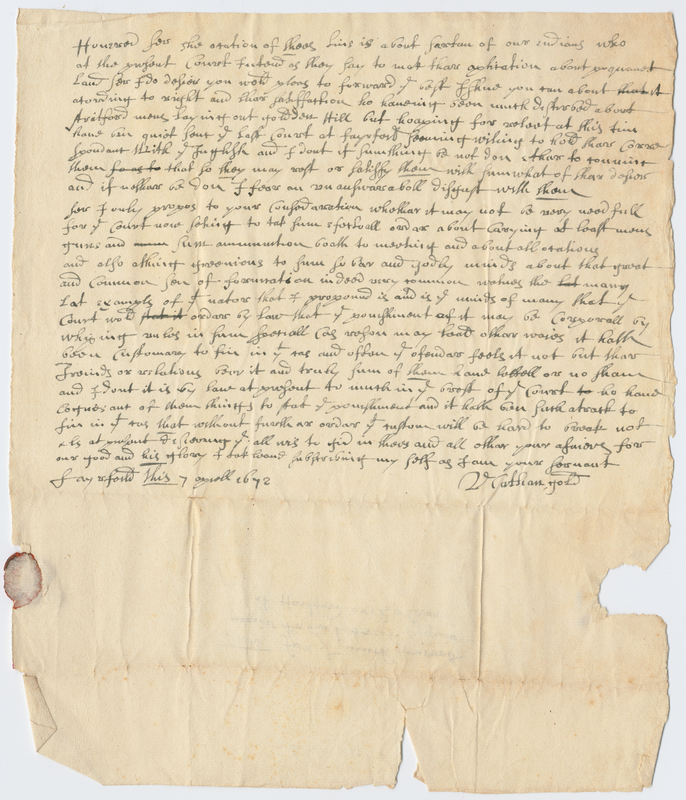 Honered ser the ocation of thees lins is about sartan of our indians who
at the present Court Intend as they say to mak thar aplication about poquanet
Land ser I do desier you wold pleas to forward ye best Isshue you can about
acording to right and thar satisfaction he haueing ben much disturbed about
stratford mens Laying out goldden Hill but hoaping for releat at this tim
haue ben quiet senc ye last Court at fayrfeild seeming wiling to hold thar Corre
spondanc With ye Inglish and I dout if sumthing be not don athar to
them that so they may rest or satisfy them with sumwhat of thar desier
and if nethar be don I fear an unanswarabell disgust with them
ser I only propos to your Considaration whethar it may not be very needfull
for ye Court now seting to tak sum efectuall ordar about Carying at least mens
guns and sum ammunition boath to meeting and about all ocations
and also athing greeuious to sum sober and godly minds about that great
and Common sen of fornication indeed very common witnes the many
Lat exampls of ye nator that I propound is and is ye minds of many that ye
Court wold ordar by law that ye punishment of it may be Corporall by
whiping unles in sum speciall Cas reson may lead othar waies it hath
been Customary to fin in ye cas and often ye ofendar feels it not but thar
freinds or relations bers it and truly sum of them haue lettell or no sham
and I dout it is by law at present to much in ye brest of ye Court to haue
cognesanc of them things to stat ye punishment and it hath ben such atrack to
fin in ye cas that without furthar ordar ye custom will be hard to break not
els at present desiering ye all wis to gid in thees and all othar your afaiers for
our good and his glory I tak leaue subscribing my self as I am your seruant
fayrfeild this 7 aprell 1672 Nathan gold